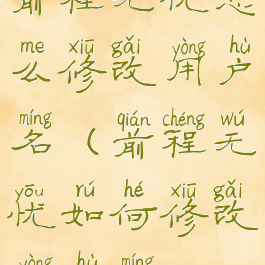 前程无忧怎
me xiū gǎi yòng hù
么修改用户
míng qián chéng wú
名（前程无
yōu rú hé xiū gǎi
忧如何修改
yòng hù míng